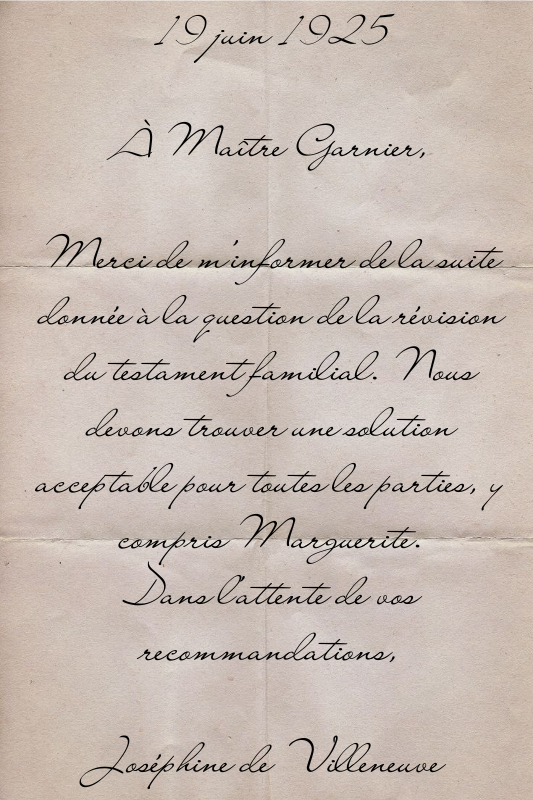 19 juin 1925
À Maître Garnier,
Merci de m'informer de la suite
donnée à la question de la révision
du testament familial. Nous
devons trouver une solution
acceptable pour toutes les parties, y
compris Marguerite.
Dans l'attente de vos
recommandations,
Joséphine de Villeneuve